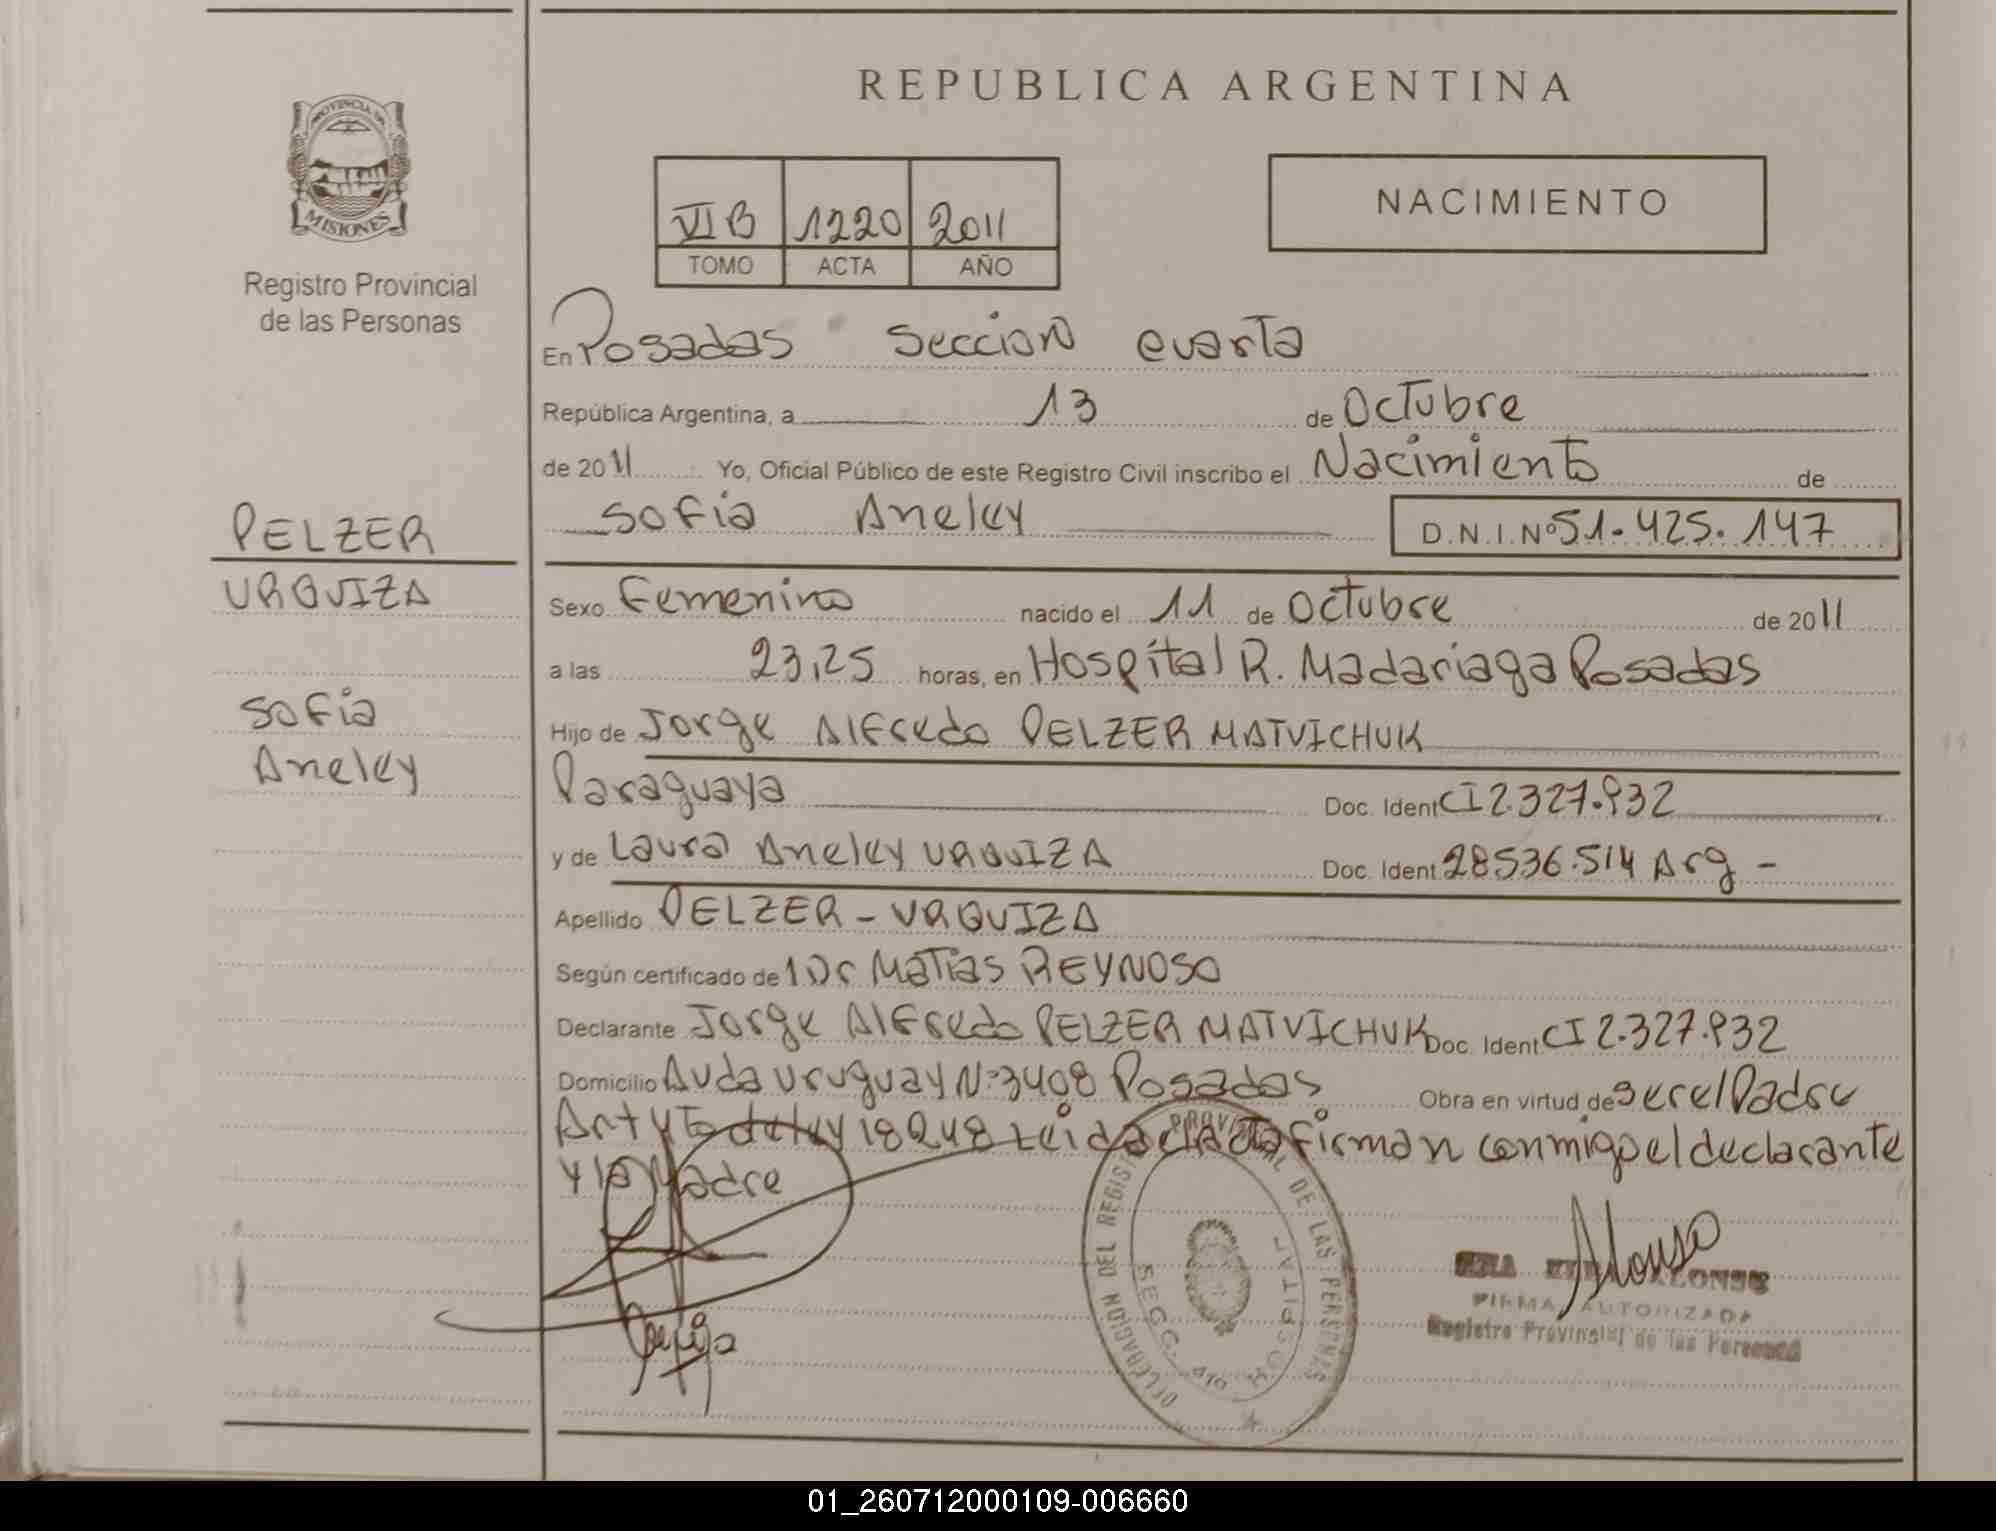 REPUBLICA ARGENTINA
PROVINCIA DE
MISIONES
Registro Provincial
de las Personas
VI B 1220 2011
TOMO ACTA AÑO
NACIMIENTO
En Posadas Seccion cuarta
República Argentina, a 13 de Octubre
de 2011 Yo, Oficial Público de este Registro Civil inscribo el Nacimiento de
Sofia Aneley D.N.I.Nº 51.425.147
PELZER
URQUIZA
Sofia
Aneley
Sexo Femenino nacido el 11 de Octubre de 2011
a las 23,25 horas, en Hospital R. Madariaga Posadas
Hijo de Jorge Alfredo PELZER MATVICHUK
Paraguaya Doc. Ident CI 2.327.932
y de Laura Aneley URQUIZA Doc. Ident 28536.514 Arg -
Apellido PELZER - URQUIZA
Según certificado de 1 Dr Matias REYNOSO
Declarante Jorge Alfredo PELZER MATVICHUK Doc. Ident CI 2.327.932
Domicilio Avda Uruguay Nº 3408 Posadas Obra en virtud de ser el Padre
Art 4To de ley 18248 Leida el acta firman conmigo el declarante
y la Madre
DELEGACION DEL REGISTRO PROVINCIAL DE LAS PERSONAS
SECC. 4ta HOSPITAL
Alonso
ALONSO
FIRMA AUTORIZADA
Registro Provincial de las Personas
01_260712000109-006660